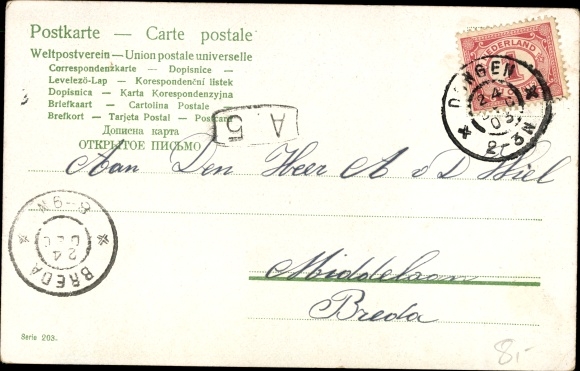 Postkarte — Carte postale
Weltpostverein — Union postale universelle
Correspondenzkarte — Dopisnice —
Levelező-Lap — Korespondenční listek
Dopisnica — Karta Korespondenzyjna
Briefkaart — Cartolina Postale
Brefkort — Tarjeta Postal — Postcard
Дописна карта
ОТКРЫТОЕ ПИСЬМО
NEDERLAND
DONGEN
24
A 5
Aan Den Heer A v D Wiel
8-9N
24
DEC
BREDA
Middellaan
Breda
Serie 203.
8,-